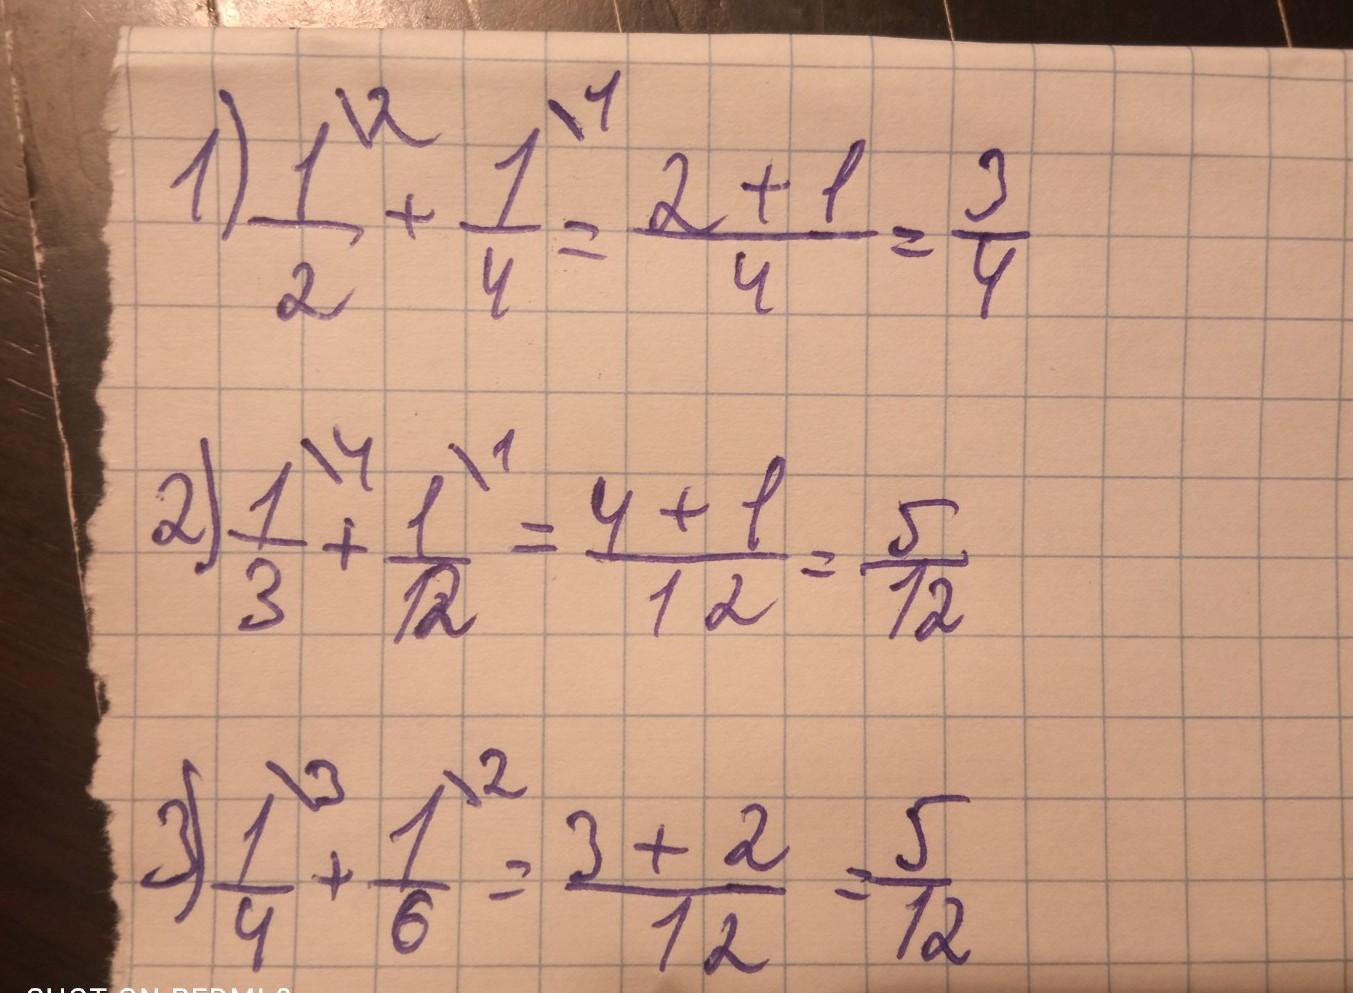 1) 1/2 \2 + 1/4 \1 = (2 + 1)/4 = 3/4
2) 1/3 \4 + 1/12 \1 = (4 + 1)/12 = 5/12
3) 1/4 \3 + 1/6 \2 = (3 + 2)/12 = 5/12